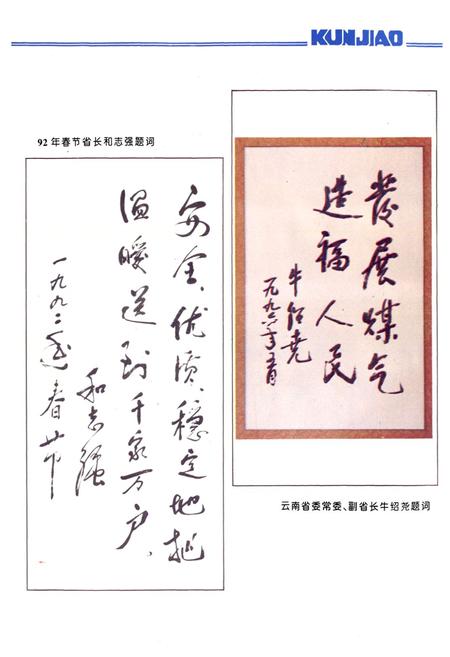 KUNJIAO
92年春节省长和志强题词
安全、优质、稳定地把
温暖送到千家万户、
和志强
一九九二年春节
發展煤气
造福人民
牛绍堯
一九九六年五月
云南省委常委、副省长牛绍尧题词